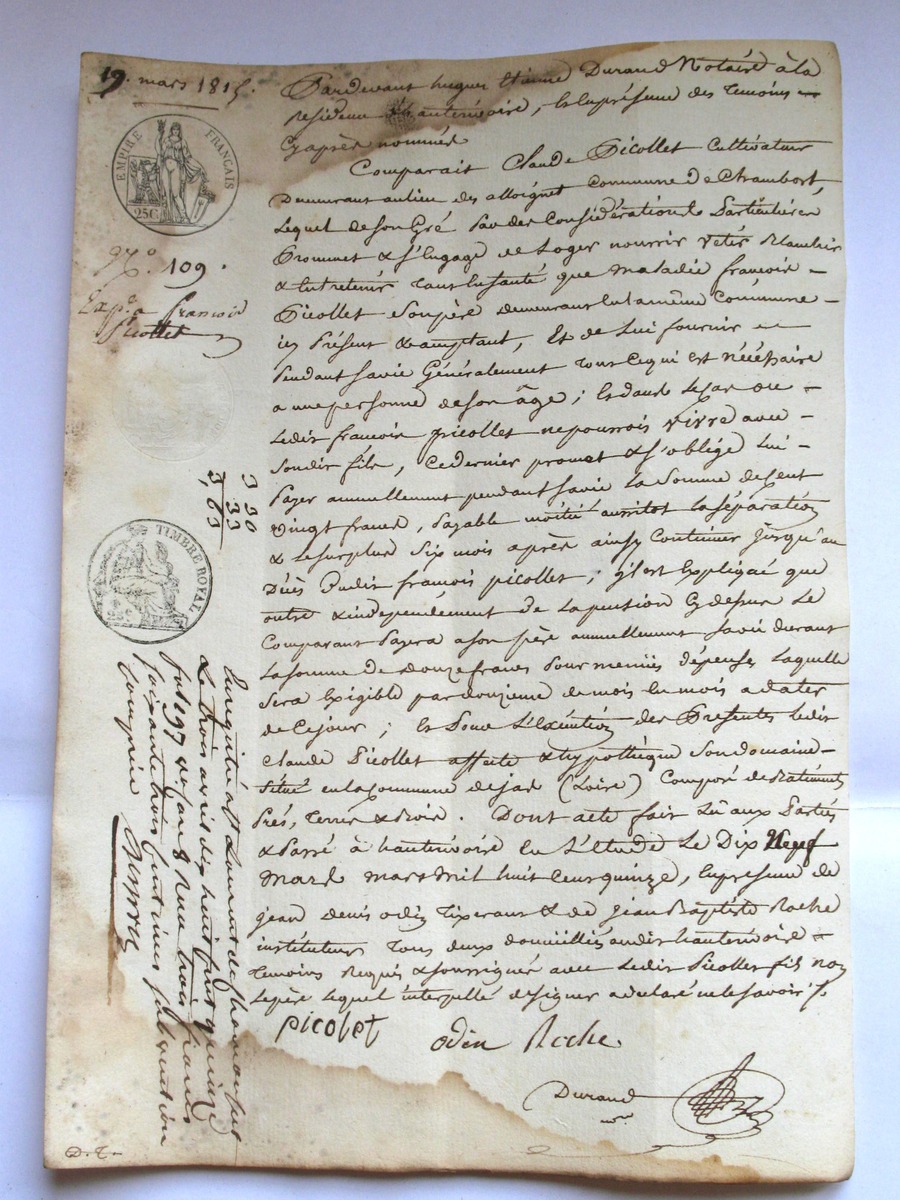 19. mars 1815.
EMPIRE FRANÇAIS
25C
N.° 109.
Exp.on a françois
Picollet
3 30
33
3,63
TIMBRE ROYAL
25C
Pardevant hugues Etienne Durand Notaire à la
residence d'hauterivoire, & En presence des temoins
Cy après nommés
Comparait Claude Picollet Cultivateur
Demeurant au lieu des alloignet Commune De Chambost,
Lequel de son Gré par des Considérations Particulières
Prommet & s'Engage de Loger nourrir vétir Blanchir
& Entretenir tant En santé que maladie françois
Picollet son père demeurant En la même Commune
ici Présent & acceptant, Et de Lui fournir
Pendant sa vie Généralement tout Ce qui est nécéssaire
a une personne de son âge ; Et dans Le Cas ou
Ledit françois picollet ne pourrois vivre avec
son dit fils, Ce dernier promet & s'oblige Lui
Payer annuellement pendant sa vie La somme de Cent
Vingt francs, Payable moitié aussitot La séparation
& Le surplus six mois après ainsy Continuer jusqu'au
Décès Dudit françois picollet ; il Est Expliqué que
outre & independément de La pension Cy dessus Le
Comparant Payera a son père annuellement sa vie durant
La somme de Douze francs Pour menüs dépenses Laquelle
sera Exigible par douzieme de mois En mois a dater
de Ce jour ; Et Pour L'Exécution des Presentes Ledit
Claude Picollet affecte & hypothèque son domaine
situé en La Commune de jas (Loire) Composé de Batiments
Prés, terres & Bois. Dont acte fait Lû aux Parties
& Passé à hauterivoire En L'étude Le Dix Neuf
Mars mars mil huit Cent quinze, En presence de
jean denis odin tixerant & de jean Baptiste Roche
instituteur tous deux domiciliés audit hauterivoire
temoins Requis & soussignés avec Ledit Picollet fils non
Le père Lequel interpellé de signer a declaré ne le savoir ./.
picolet
odin Roche
Durand
nre
Enregistré a St Laurent de Chamousset
Le trois avril dix huit Cent quinze
fol. 97 vo Case 8 Reçu trois francs
soixante trois Centimes subvention
Comprise
D. t.